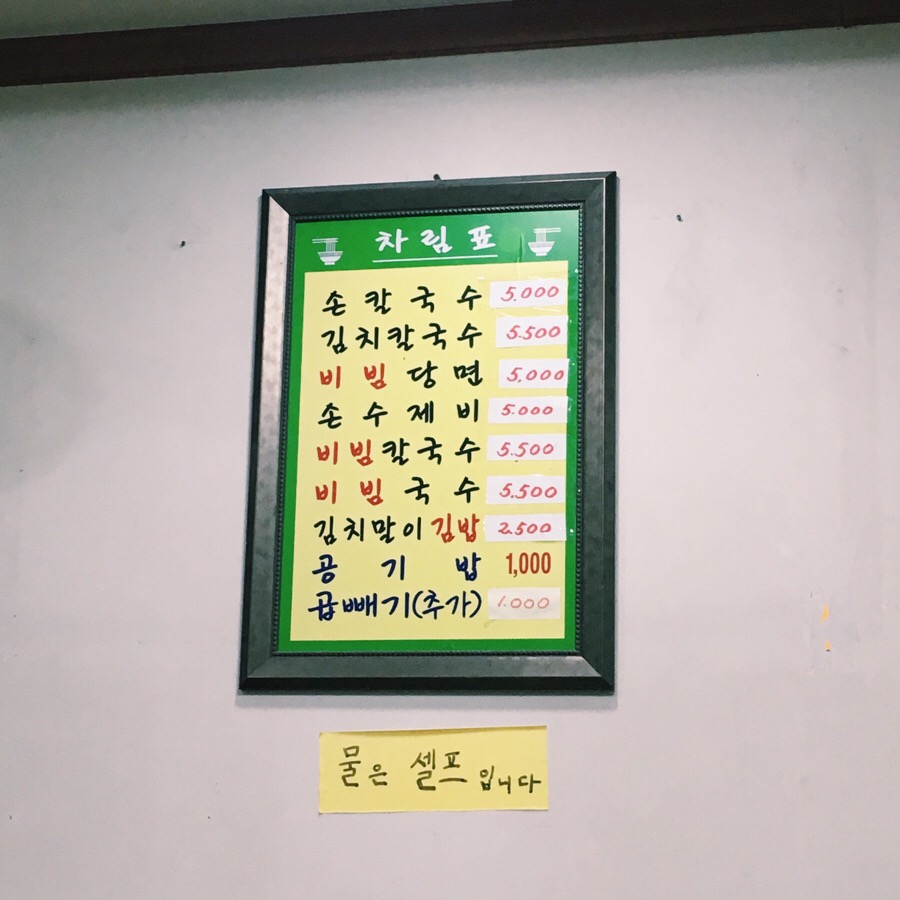 차림표
손칼국수 5.000
김치칼국수 5.500
비빔당면 5.000
손수제비 5.000
비빔칼국수 5.500
비빔국수 5.500
김치말이김밥 2.500
공기밥 1,000
곱빼기(추가) 1.000
물은 셀프입니다